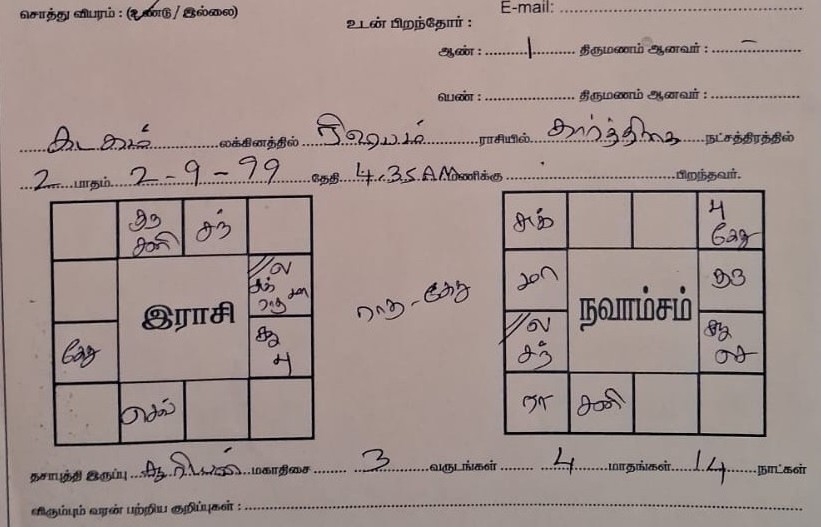 சொத்து விபரம் : (உண்டு / இல்லை)
E-mail:
உடன் பிறந்தோர் :
ஆண் : 1 திருமணம் ஆனவர் : –
பெண் : திருமணம் ஆனவர் :
கடகம் லக்கினத்தில் ரிஷபம் ராசியில் கார்த்திகை நட்சத்திரத்தில்
2 பாதம் 2-9-99 தேதி 4.35 AM மணிக்கு பிறந்தவர்.
குரு சனி
சந்
ல சுக் ராகு மா
இராசி
கேது
சூ பு
செவ்
ராகு - கேது
சுக்
பு கேது
மா
குரு
நவாம்சம்
ல சந்
சூ செ
ரா
சனி
தசாபுத்தி இருப்பு சூரியன் மகாதிசை 3 வருடங்கள் 4 மாதங்கள் 14 நாட்கள்
விரும்பும் வரன் பற்றிய குறிப்புகள் :